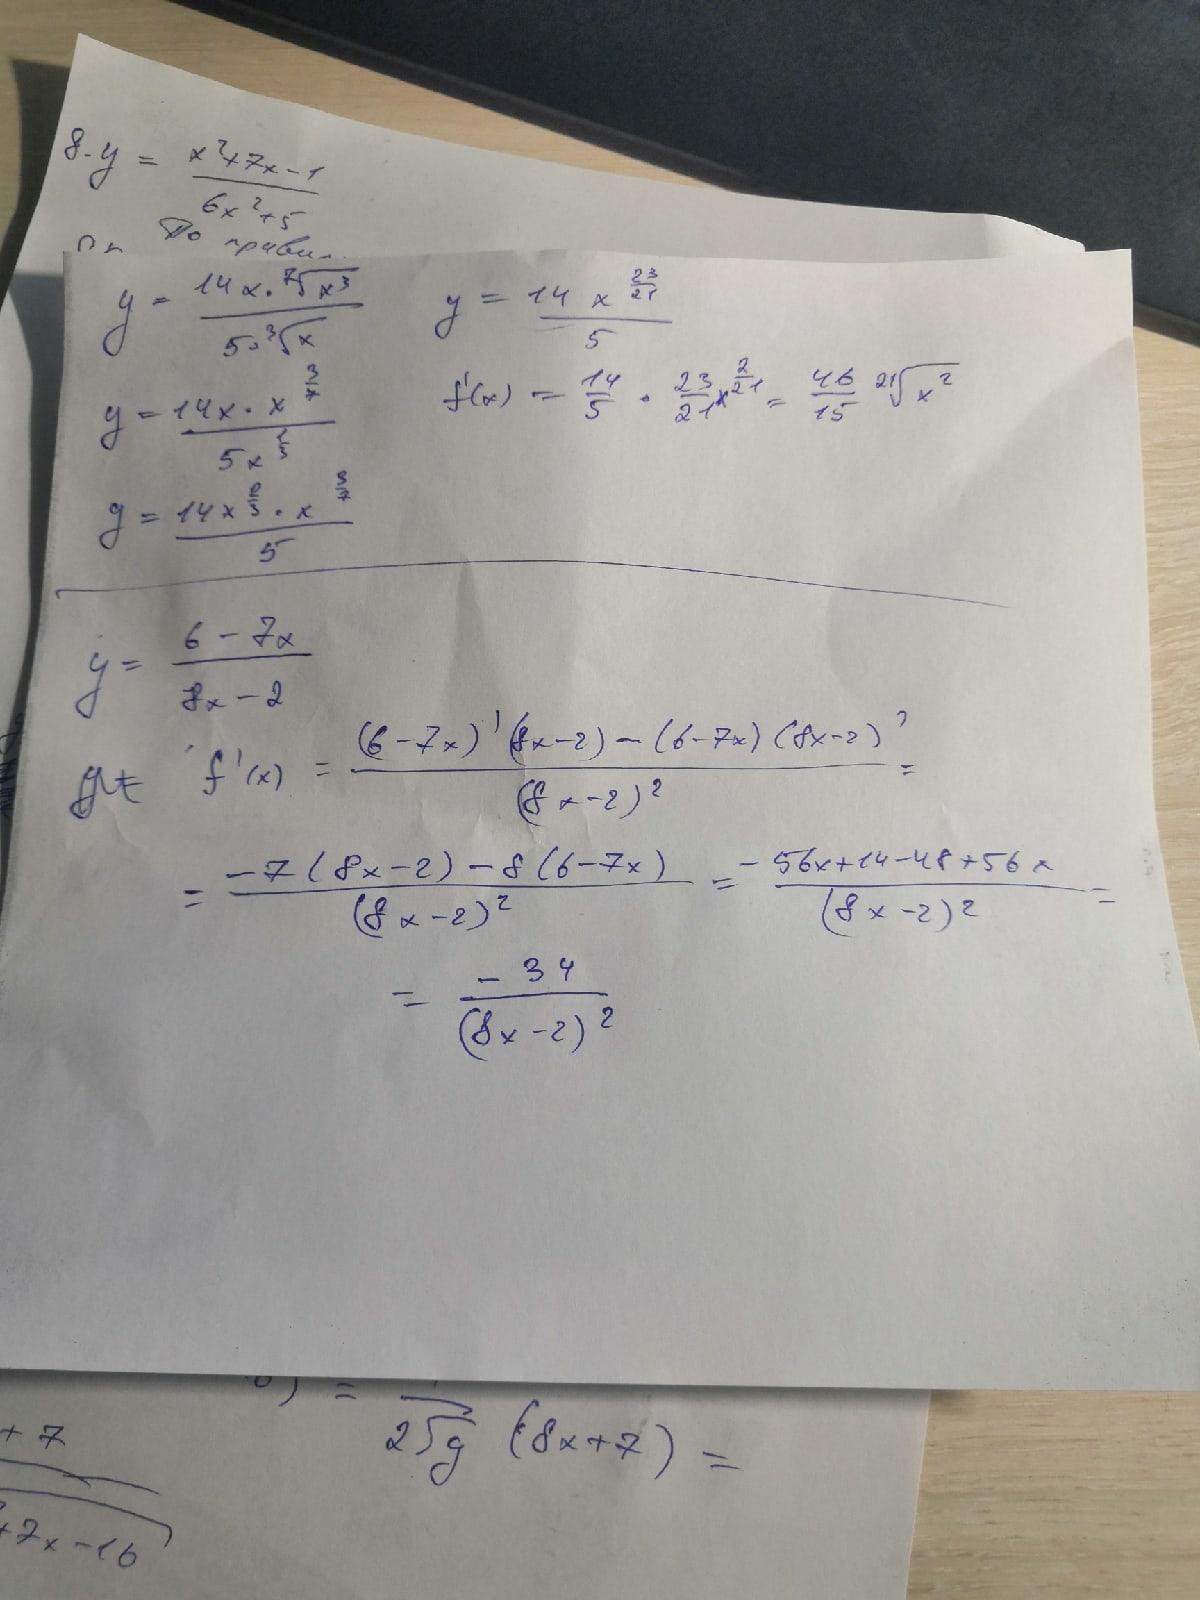 8. y = (x²+7x-1)/(6x²+5)
По
y = (14x·⁷√x³)/(5·³√x)
y = (14x·x^(3/7))/(5x^(1/3))
y = (14x^(2/3)·x^(3/7))/5
y = (14x^(23/21))/5
f'(x) = 14/5 · 23/21 x^(2/21) = 46/15 ²¹√x²
y = (6-7x)/(8x-2)
f'(x) = ((6-7x)'(8x-2)-(6-7x)(8x-2)')/(8x-2)² =
= (-7(8x-2)-8(6-7x))/(8x-2)² = (-56x+14-48+56x)/(8x-2)² =
= -34/(8x-2)²
) = 2√y (8x+7) =
+7
+7x-16